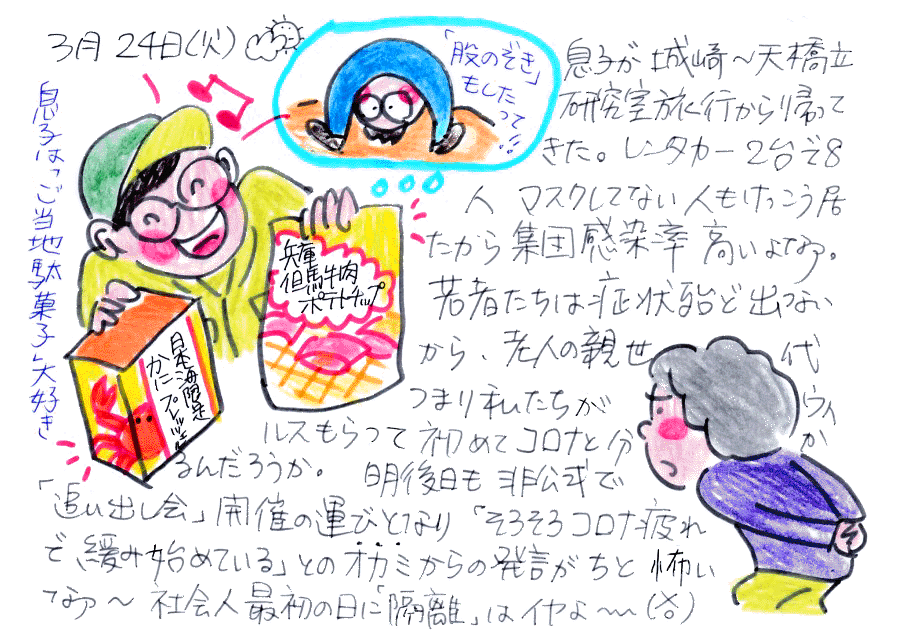 3月24日(火)
「股のぞき」
もしたって!!
息子が城崎～天橋立
研究室旅行から帰って
きた。レンタカー2台で8
人 マスクしてない人もけっこう居
たから集団感染率高いよなあ。
若者たちは症状殆ど出ない
から、老人の親世代
つまり私たちがウィ
ルスもらって初めてコロナと分か
るんだろうか。 明後日も非公式で
「追い出し会」開催の運びとなり「そろそろコロナ疲れ
で緩み始めている」とのオカミからの発言がちと怖い
なア～ 社会人最初の日に「隔離」はイヤよ～
息子は「ご当地駄菓子」大好き
兵庫
但馬牛肉
ポテトチップ
日本海限定
かにプレッツェル